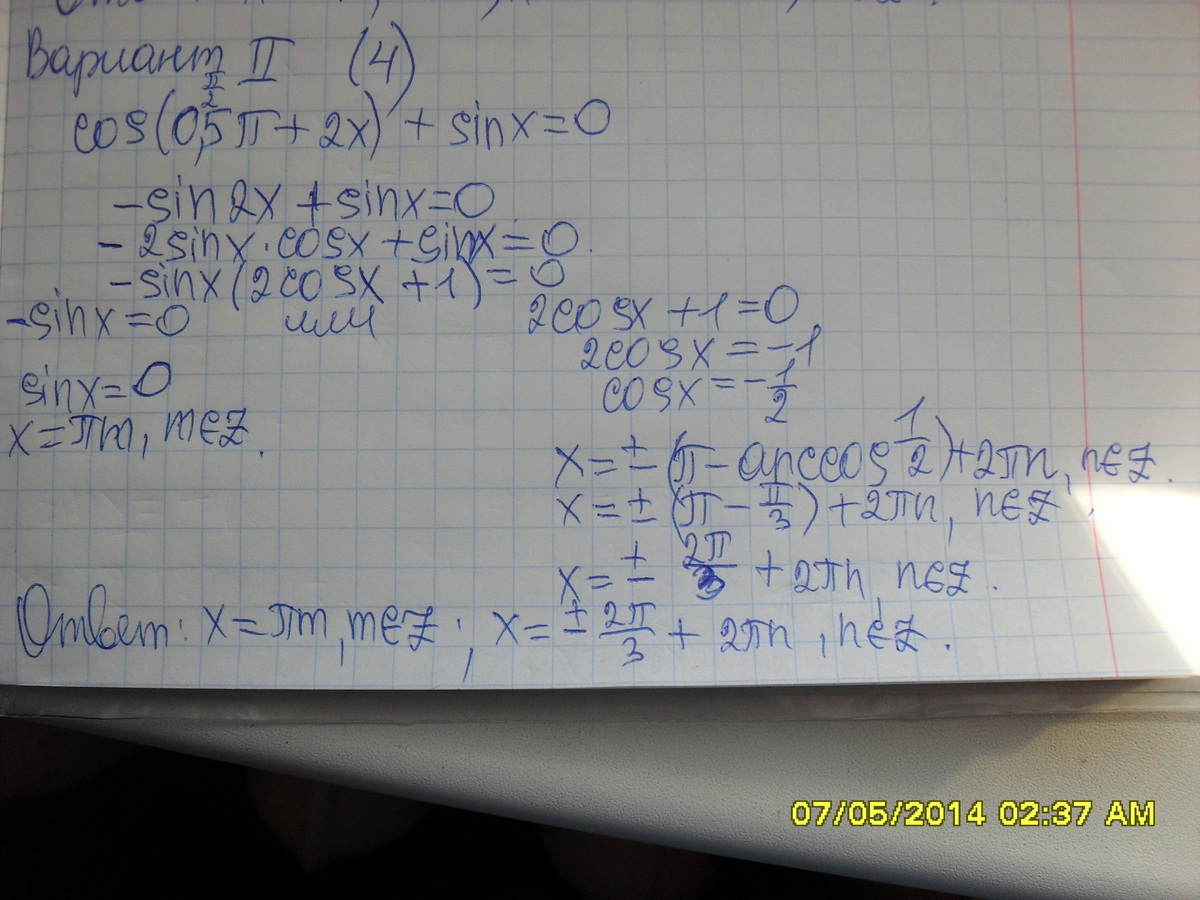 Вариант II (4)
π/2
cos(0,5π + 2x) + sinx = 0
-sin2x + sinx = 0
- 2sinx · cosx + sinx = 0.
-sinx(2cosx + 1) = 0
-sinx = 0 или 2cosx + 1 = 0
2cosx = -1
sinx = 0 cosx = -1/2
x = πm, m∈Z.
x = ± (π - arccos 1/2) + 2πn, n∈Z.
x = ± (π - π/3) + 2πn, n∈Z.
x = ± 2π/3 + 2πn, n∈Z.
Ответ: x = πm, m∈Z; x = ± 2π/3 + 2πn, n∈Z.
07/05/2014 02:37 AM